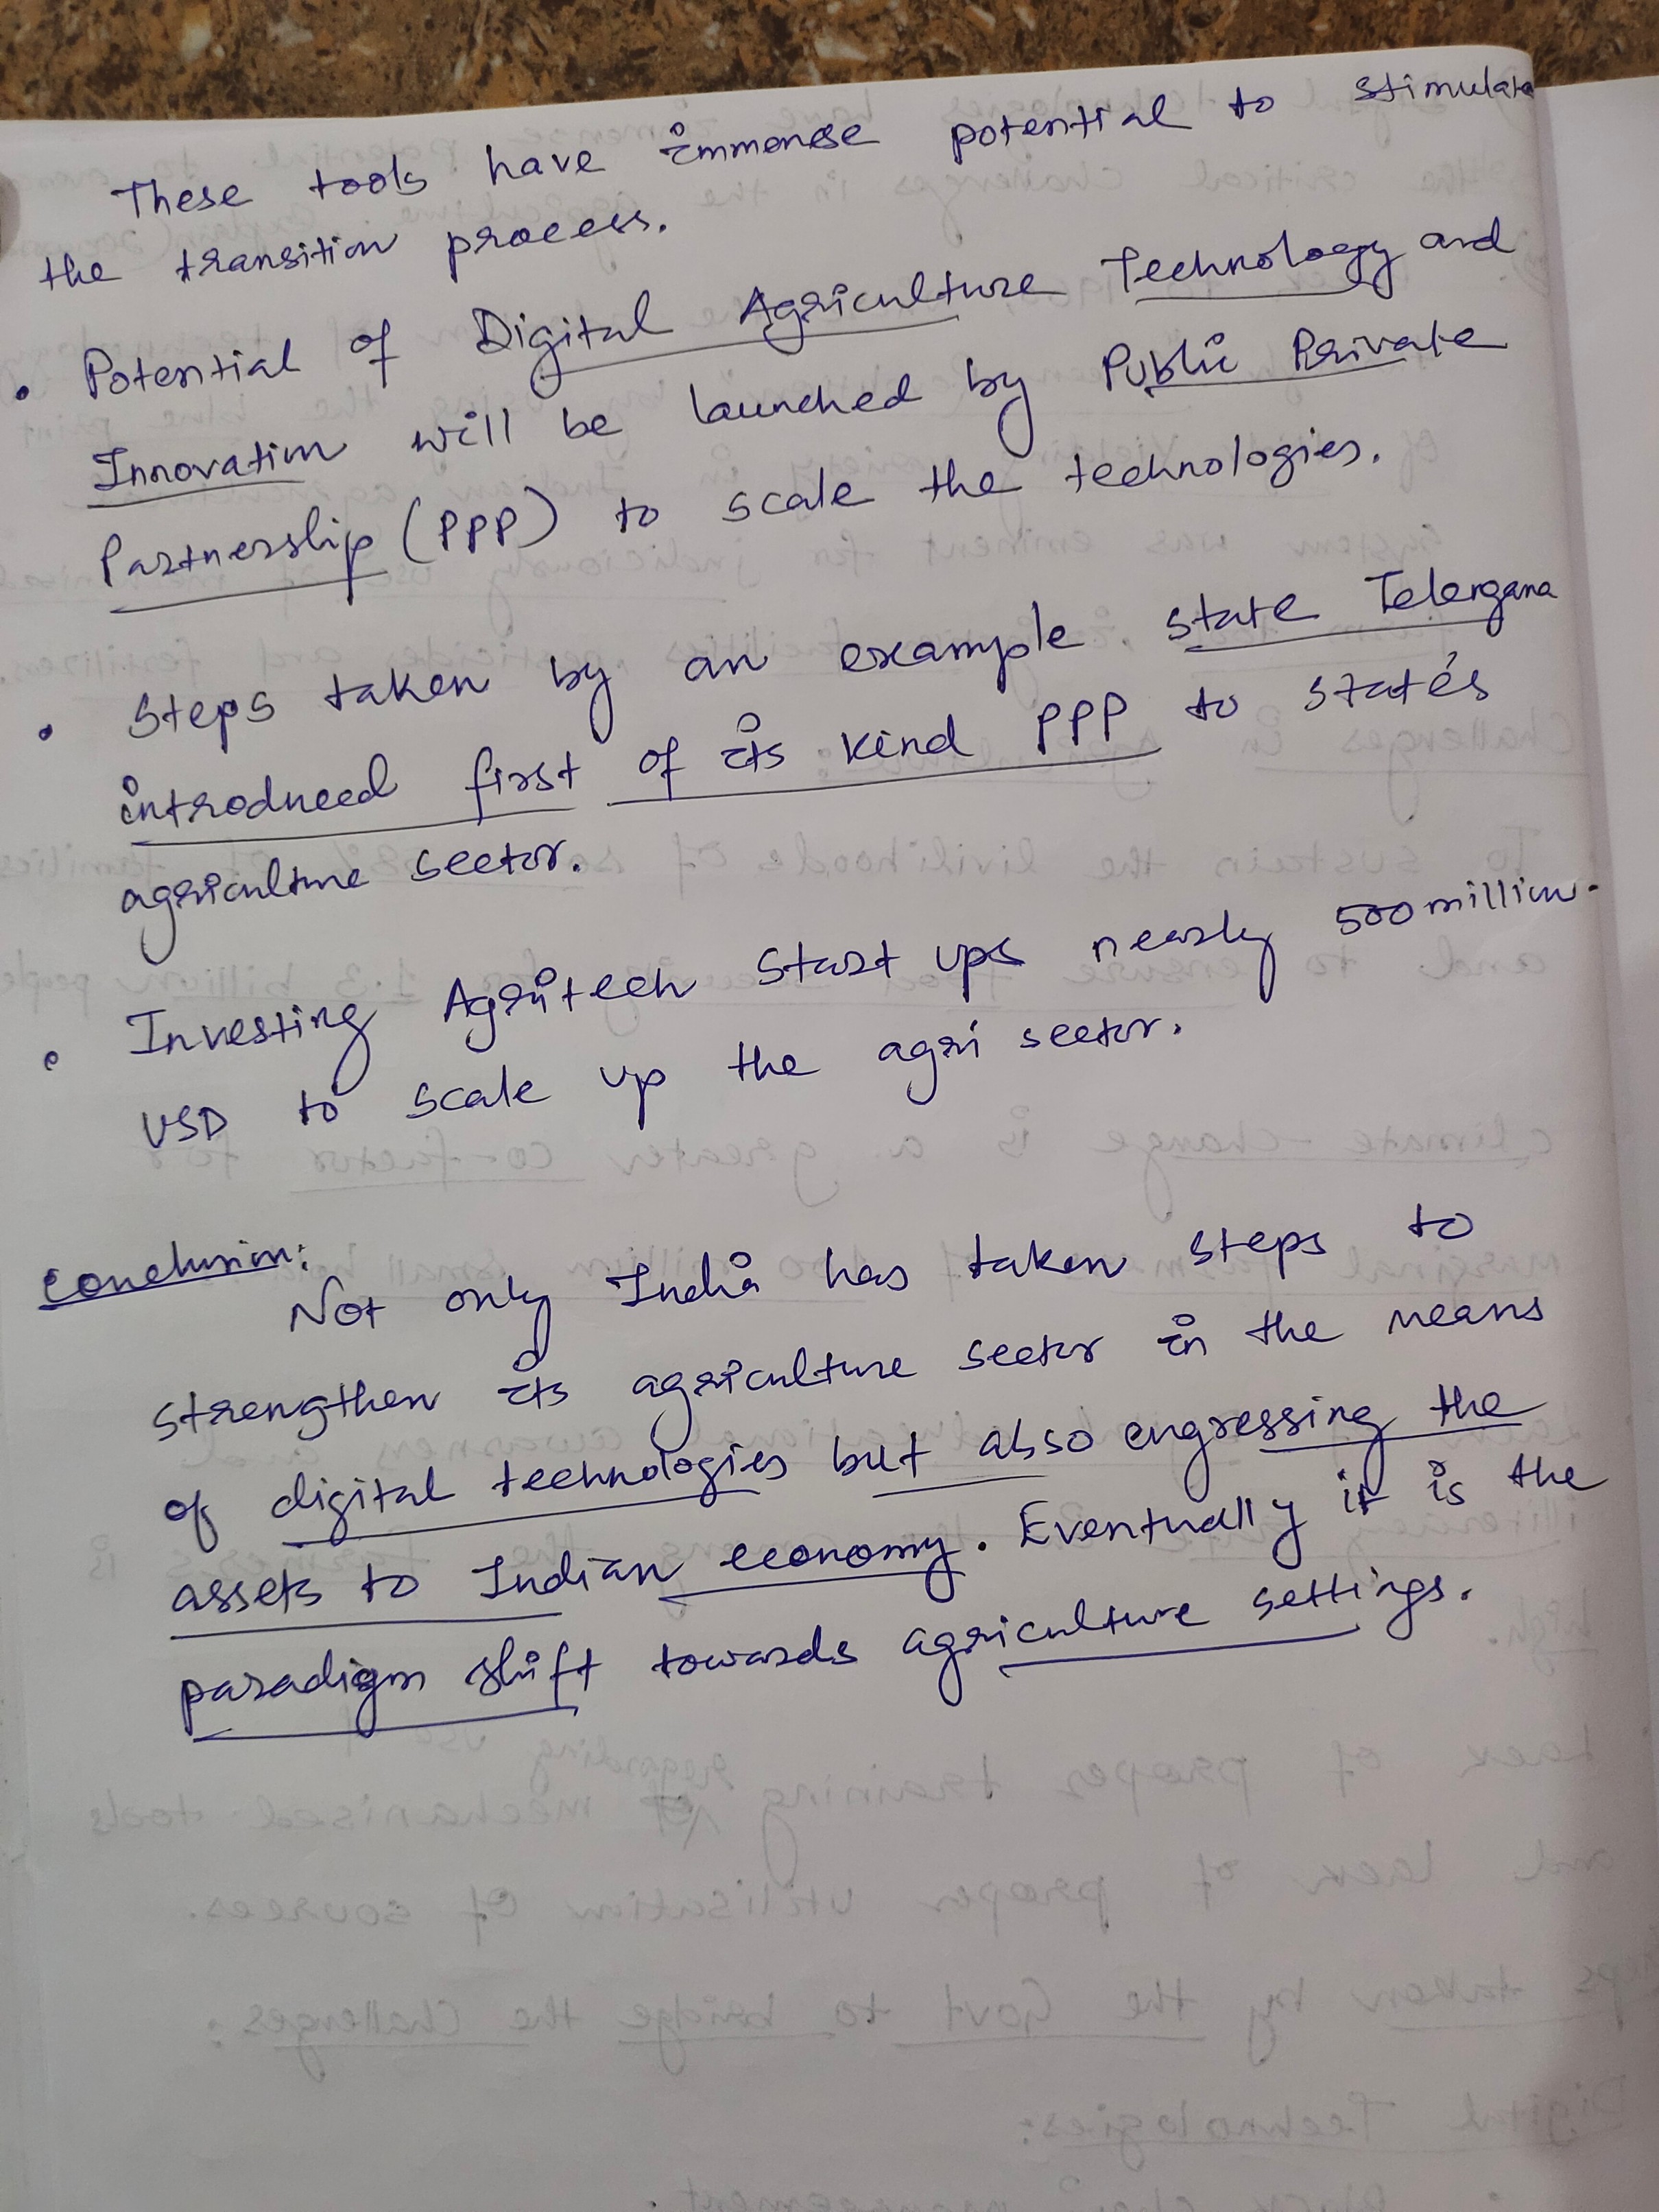 These tools have immense potential to stimulate
the transition process.
• Potential of Digital Agriculture Technology and
Innovation will be launched by Public Private
Partnership (PPP) to scale the technologies.
• Steps taken by an example state Telengana
introduced first of its kind PPP to state's
agriculture sector.
• Investing Agritech Start ups nearly 500 million
USD to scale up the agri sector.
Conclusion:
Not only India has taken steps to
strengthen its agriculture sector in the means
of digital technologies but also engressing the
assets to Indian economy. Eventually it is the
paradigm shift towards agriculture settings.